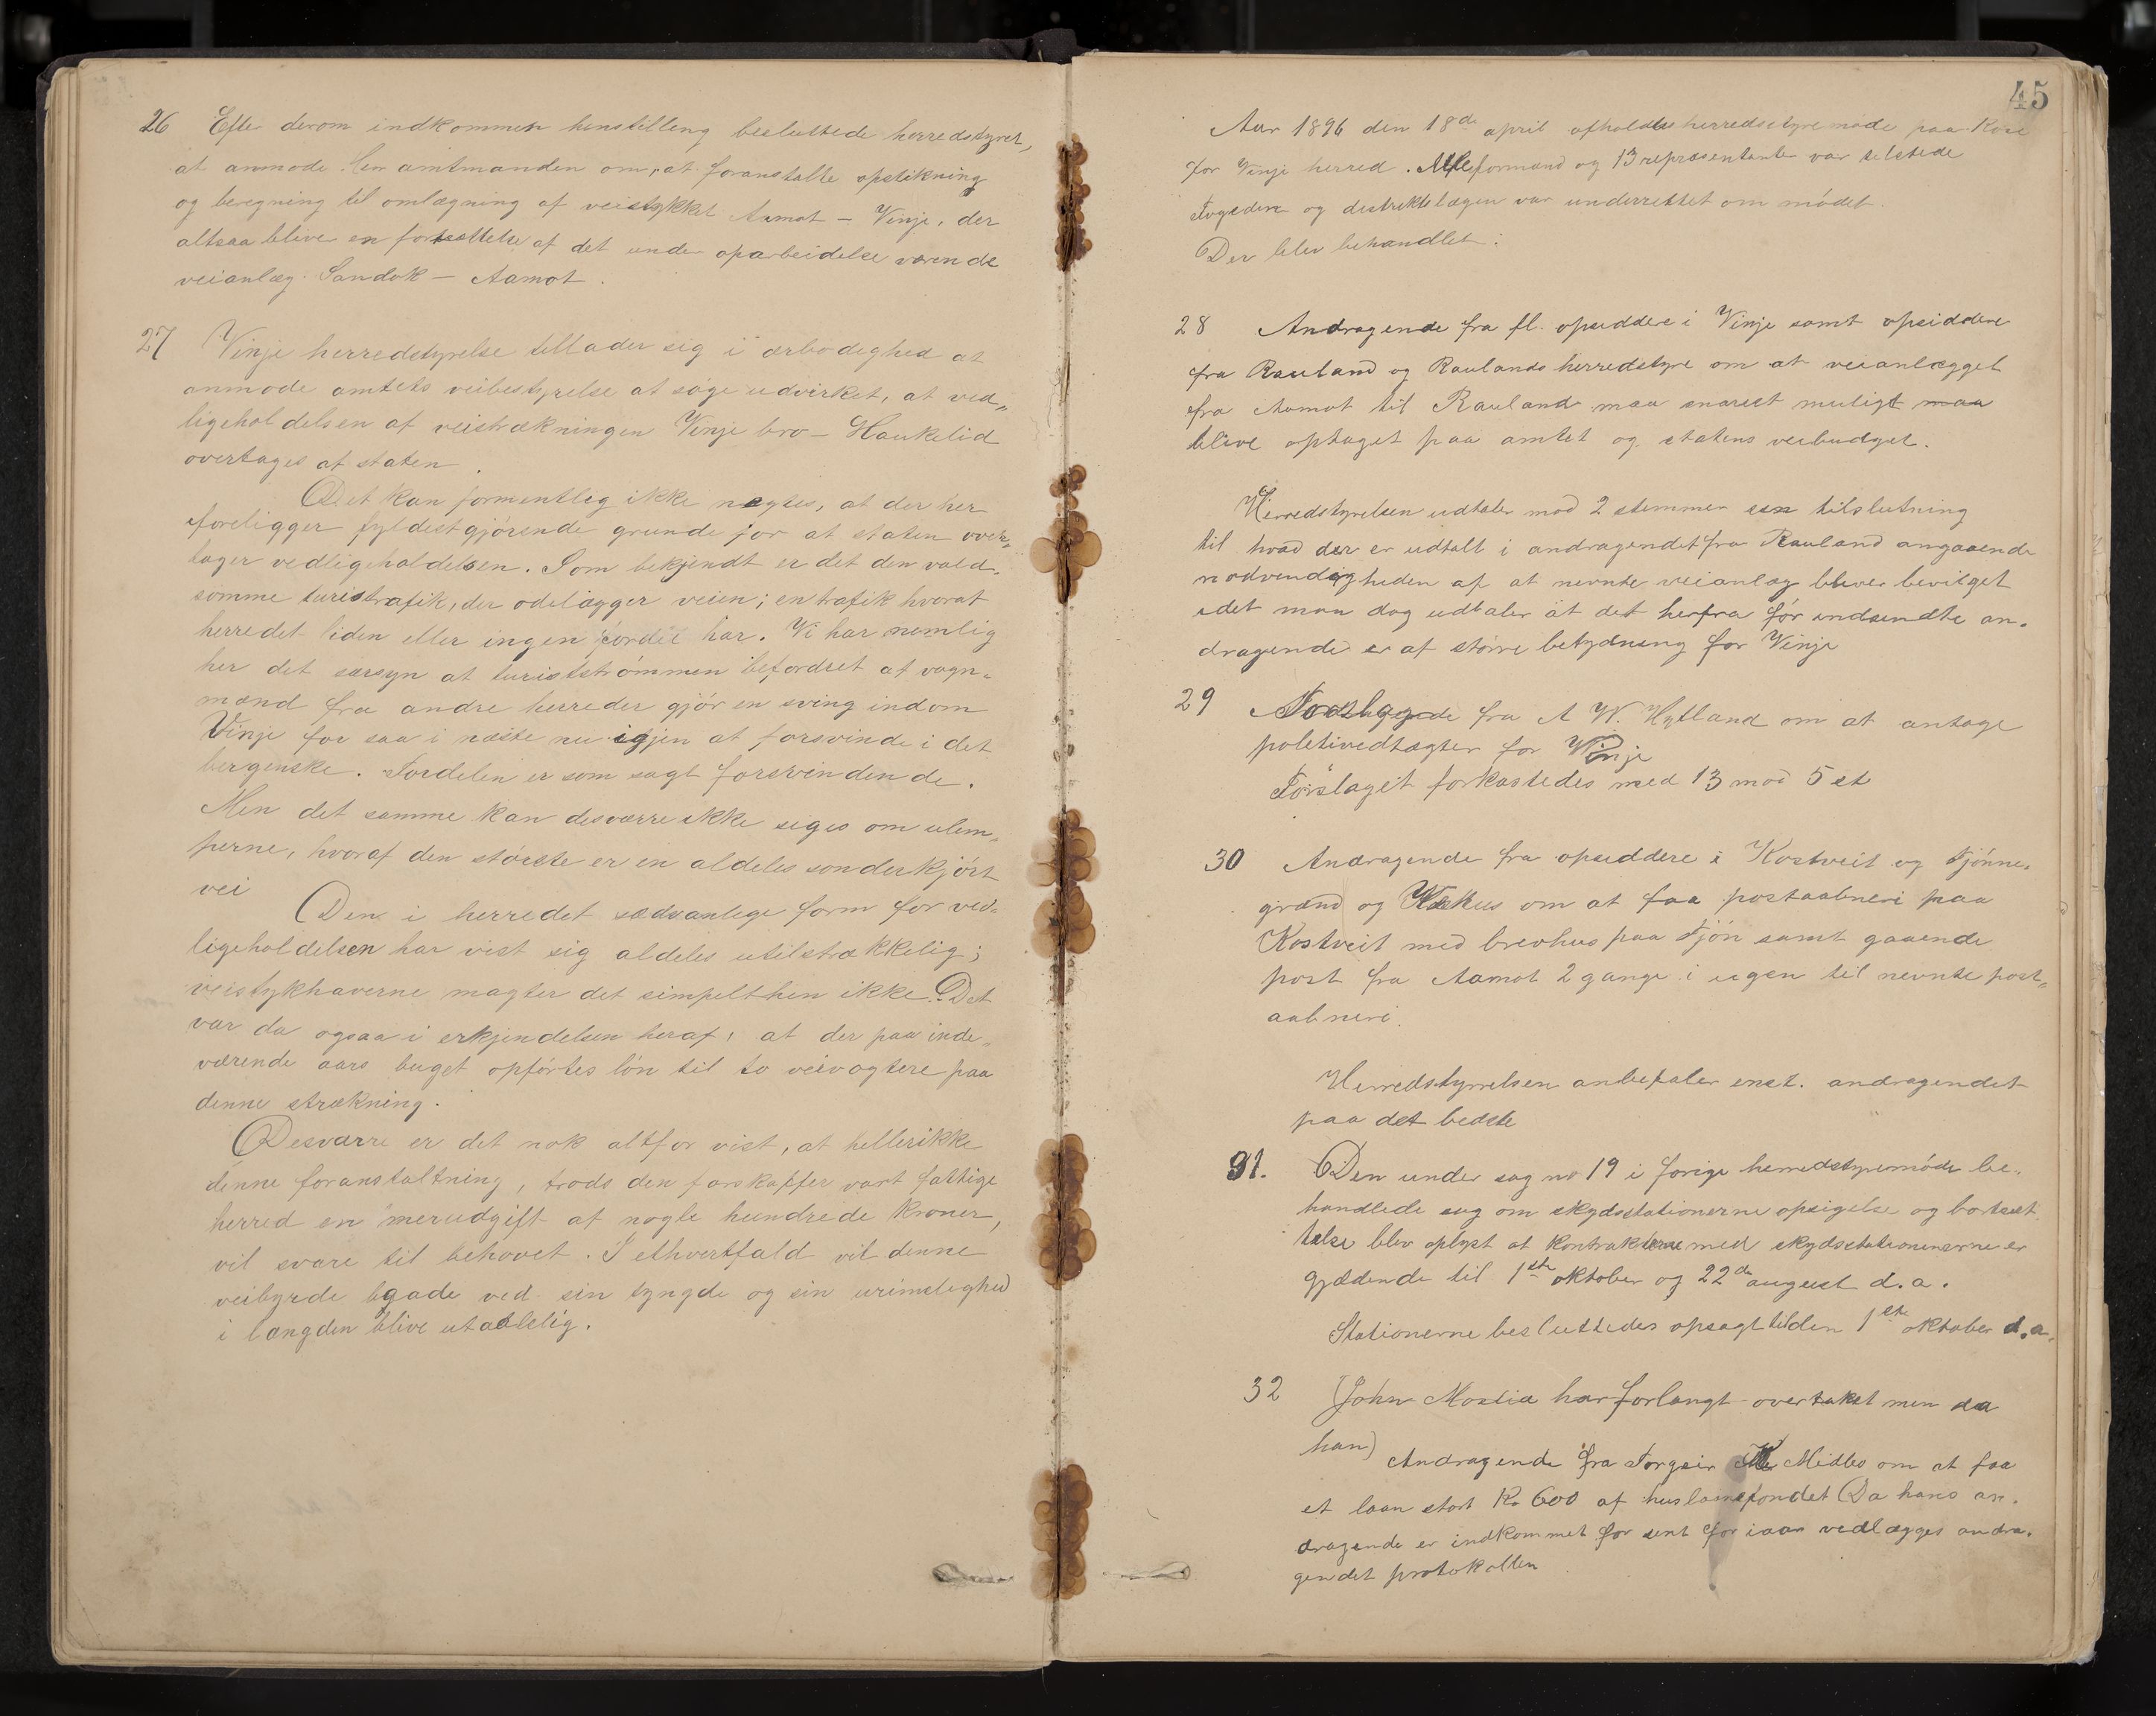 26 Efter derom indkommen henstilling besluttede herredstyret,
at anmode Herr amtmanden om, at foranstalte opstikning
og beregning til omlægning af veistykket Aamot – Vinje, der
altsaa blive en fortsættelse af det under oparbeidelse værende
veianlæg Sandok – Aamot.
27 Vinje herredstyrelse tillader sig i ærbødighed at
anmode amtets veibestyrelse at søge udvirket, at ved„
ligeholdelsen af veistrækningen Vinje bro – Haukelid
overtages af staten.
Det kan formentlig ikke nægtes, at der her
foreligger fyldestgjørende grunde for at staten over„
tager vedligeholdelsen. Som bekjendt er det den vold„
somme turisttrafik, der ødelægger veien; en trafik hvoraf
herredet liden eller ingen fordel har. Vi har nemlig
her det særsyn at turiststrømmen befordret af vogn„
mænd fra andre herreder gjør en sving indom
Vinje for saa i næste nu igjen at forsvinde i det
bergenske. Fordelen er som sagt forsvindende.
Men det samme kan desværre ikke siges om ulem„
perne, hvoraf den største er en aldeles sønderkjørt
vei
Den i herredet sædvanlige form for ved„
ligeholdelsen har vist sig aldeles utilstrækkelig;
veistykhaverne magter det simpelthen ikke. Det
var da ogsaa i erkjendelsen heraf, at der paa inde„
værende aars buget opførtes løn til to veivogtere paa
denne strækning.
Desværre er det nok altfor vist, at heller ikke
denne foranstaltning, trods den forskaffer vort fattige
herred en merudgift af nogle hundrede kroner,
vil svare til behovet. I ethvertfald vil denne
veibyrde baade ved sin tyngde og sin urimelighed
i længden blive utaalelig.
45
Aar 1896 den 18de april afholdtes herredstyremøde paa
for Vinje herred. Alle formænd og 13 repræsentanter var tilstede
Fogden og distriktslægen var underrettet om mødet.
Der blev behandlet:
28 Andragende fra fl. opsiddere i Vinje samt opsiddere
fra Rauland og Raulands herredstyre om at veianlægget
fra Aamot til Rauland maa snarest muligt maa
blive optaget paa amtet og statens veibudget.
Herredstyrelsen udtaler mod 2 stemmer sin tilslutning
til hvad der er udtalt i andragendet fra Rauland angaaende
nødvendigheden af at nevnte veianlæg bliver bevilget
idet man dog udtaler at det herfra før indsendte an„
dragende er af større betydning for Vinje
29 fra A W. Hylland om at antage
politivedtægter for Vinje
Forslaget forkastedes med 13 mod 5 st
30 Andragende fra opsiddere i Kostveit og Tjønne„
grænd og om at faa postaabneri paa
Kostveit med brevhus paa Tjøn samt gaaende
post fra Aamot 2 gange i ugen til nevnte post„
aabneri.
Herredstyrelsen anbefaler enst. andragendet
paa det bedste
31. Den under sag no 19 i forige herredstyremøde be„
handlede sag om skydsstationerne opsigelse og bortsæt„
telse blev oplyst at kontrakterne med skydsstationenerne er
gjældende til 1ste oktober og 22de august d.a.
Stationerne besluttedes opsagt til den 1ste oktober d.a.
32 (John Moslia har forlangt overtakst men da
han)
Andragende fra Torgeir Midbø om at faa
et laan stort Kr 600 af huslaanefondet Da hans an„
dragende er indkommet for sent for iaar vedlægges andra„
gendet protokollen